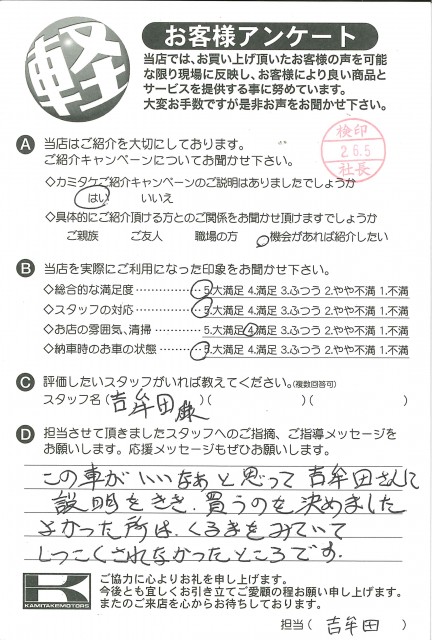 軽
お客様アンケート
当店では、お買い上げ頂いたお客様の声を可能
な限り現場に反映し、お客様により良い商品と
サービスを提供する事に努めています。
大変お手数ですが是非お声をお聞かせ下さい。
A 当店はご紹介を大切にしております。
ご紹介キャンペーンについてお聞かせ下さい。
検印
26.5
社長
◇カミタケご紹介キャンペーンのご説明はありましたでしょうか
はい いいえ
◇具体的にご紹介頂ける方とのご関係をお聞かせ頂けますでしょうか
ご親族 ご友人 職場の方 機会があれば紹介したい
B 当店を実際にご利用になった印象をお聞かせ下さい。
◇総合的な満足度 5.大満足 4.満足 3.ふつう 2.やや不満 1.不満
◇スタッフの対応 5.大満足 4.満足 3.ふつう 2.やや不満 1.不満
◇お店の雰囲気、清掃 5.大満足 4.満足 3.ふつう 2.やや不満 1.不満
◇納車時のお車の状態 5.大満足 4.満足 3.ふつう 2.やや不満 1.不満
C 評価したいスタッフがいれば教えてください。(複数回答可)
スタッフ名 (吉牟田様)( )( )
D 担当させて頂きましたスタッフへのご指摘、ご指導メッセージを
お願いします。応援メッセージもぜひお願いします。
この車がいいなぁと思って吉牟田さんに
説明をきき、買うのを決めました
よかった所は、くるまをみていて
しつこくされなかったところです.
K
KAMITAKEMOTORS
ご協力に心よりお礼を申し上げます。
今後とも宜しくお引き立てご愛顧の程お願い申し上げます。
またのご来店を心からお待ちしております。
担当( 吉牟田 )